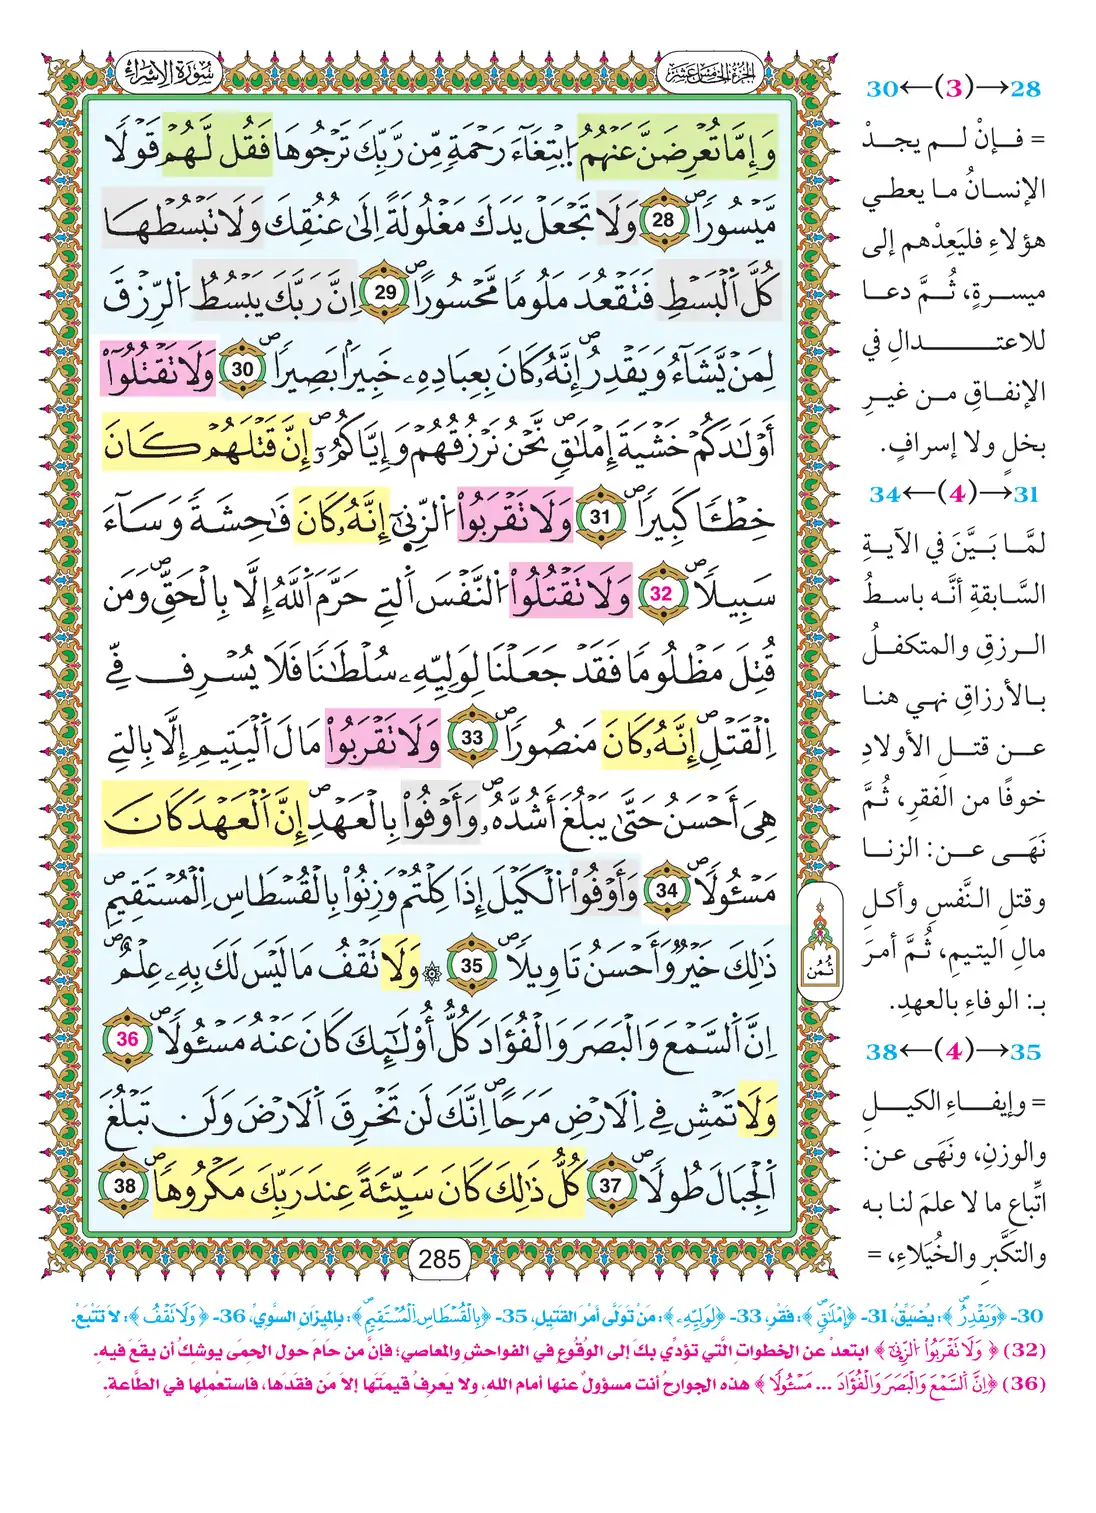 الجزء الخامس عشر
سُورَةُ الإِسْرَاءِ
وَإِمَّا تُعْرِضَنَّ عَنْهُمُ اُ۪بْتِغَآءَ رَحْمَةٍ مِّن رَّبِّكَ تَرْجُوهَا فَقُل لَّهُمْ قَوْلًا
مَّيْسُورًاۖ 28 وَلَا تَجْعَلْ يَدَكَ مَغْلُولَةً اِلَىٰ عُنُقِكَ وَلَا تَبْسُطْهَا
كُلَّ اَ۬لْبَسْطِ فَتَقْعُدَ مَلُومًا مَّحْسُورًاۖ 29 اِنَّ رَبَّكَ يَبْسُطُ اُ۬لرِّزْقَ
لِمَنْ يَّشَآءُ وَيَقْدِرُۖ إِنَّهُۥ كَانَ بِعِبَادِهِۦ خَبِيرَۢا بَصِيرًاۖ 30 وَلَا تَقْتُلُوٓاْ
أَوْلَٰدَكُمْ خَشْيَةَ إِمْلَٰقٖۖ نَّحْنُ نَرْزُقُهُمْ وَإِيَّاكُمُۥٓۖ إِنَّ قَتْلَهُمْ كَانَ
خِطْـًٔا كَبِيرًاۖ 31 وَلَا تَقْرَبُواْ اُ۬لزِّنَىٰٓ إِنَّهُۥ كَانَ فَٰحِشَةً وَسَآءَ
سَبِيلًاۖ 32 وَلَا تَقْتُلُواْ اُ۬لنَّفْسَ اَ۬لتِے حَرَّمَ اَ۬للَّهُ إِلَّا بِالْحَقِّۖ وَمَن
قُتِلَ مَظْلُومًا فَقَدْ جَعَلْنَا لِوَلِيِّهِۦ سُلْطَٰنًا فَلَا يُسْرِف فِّے
اِ۬لْقَتْلِۖ إِنَّهُۥ كَانَ مَنصُورًاۖ 33 وَلَا تَقْرَبُواْ مَالَ اَ۬لْيَتِيمِ إِلَّا بِالتِے
هِيَ أَحْسَنُ حَتَّىٰ يَبْلُغَ أَشُدَّهُۥۖ وَأَوْفُواْ بِالْعَهْدِۖ إِنَّ اَ۬لْعَهْدَ كَانَ
مَسْـُٔولًاۖ 34 وَأَوْفُواْ اُ۬لْكَيْلَ إِذَا كِلْتُمْ وَزِنُواْ بِالْقُسْطَاسِ اِ۬لْمُسْتَقِيمِۖ
ذَٰلِكَ خَيْرٌ وَأَحْسَنُ تَاوِيلًاۖ 35 ۞ وَلَا تَقْفُ مَا لَيْسَ لَكَ بِهِۦ عِلْمٌۖ
اِنَّ اَ۬لسَّمْعَ وَالْبَصَرَ وَالْفُؤَادَ كُلُّ أُوْلَٰٓئِكَ كَانَ عَنْهُ مَسْـُٔولًاۖ 36
وَلَا تَمْشِ فِے اِ۬لَارْضِ مَرَحًاۖ اِنَّكَ لَن تَخْرِقَ اَ۬لَارْضَ وَلَن تَبْلُغَ
اَ۬لْجِبَالَ طُولًاۖ 37 كُلُّ ذَٰلِكَ كَانَ سَيِّئَةً عِندَ رَبِّكَ مَكْرُوهًاۖ 38
ثُمُن
285
28→(3)←30
= فإنْ لم يجدْ
الإنسانُ ما يعطي
هؤلاءِ فليَعِدْهم إلى
ميسرةٍ، ثُمَّ دعا
للاعتدالِ في
الإنفاقِ من غيرِ
بخلٍ ولا إسرافٍ.
31→(4)←34
لمَّا بَيَّنَ في الآيةِ
السَّابقةِ أنَّه باسطُ
الرزقِ والمتكفلُ
بالأرزاقِ نهي هنا
عن قتلِ الأولادِ
خوفًا من الفقرِ، ثُمَّ
نَهَى عن: الزنا
وقتلِ النَّفسِ وأكلِ
مالِ اليتيمِ، ثُمَّ أمرَ
بـ: الوفاءِ بالعهدِ.
35→(4)←38
= وإيفاءِ الكيلِ
والوزنِ، ونَهَى عن:
اتِّباعِ ما لا علمَ لنا به
والتكبَّرِ والخُيَلاءِ، =
30- ﴿وَيَقْدِرُ﴾: يُضَيِّقُ، 31- ﴿إِمْلَٰقٖ﴾: فَقْرٍ، 33- ﴿لِوَلِيِّهِۦ﴾: مَنْ تَوَلَّى أَمْرَ القَتِيلِ، 35- ﴿بِالْقُسْطَاسِ اِ۬لْمُسْتَقِيمِ﴾: بِالمِيزَانِ السَّوِيِّ، 36- ﴿وَلَا تَقْفُ﴾: لاَ تَتْبَعْ.
(32) ﴿وَلَا تَقْرَبُواْ اُ۬لزِّنَىٰٓ﴾ ابتعدْ عن الخطواتِ الَّتي تؤدِّي بكَ إلى الوُقُوعِ في الفواحشِ والمعاصي؛ فإنَّ من حَامَ حول الحِمَى يوشكُ أن يقعَ فيه.
(36) ﴿اِنَّ اَ۬لسَّمْعَ وَالْبَصَرَ وَالْفُؤَادَ ... مَسْـُٔولًا﴾ هذه الجوارحُ أنت مسؤولٌ عنها أمام الله، ولا يَعرِفُ قيمتَها إلاَّ مَن فقدَها، فاستعملِها في الطَّاعةِ.